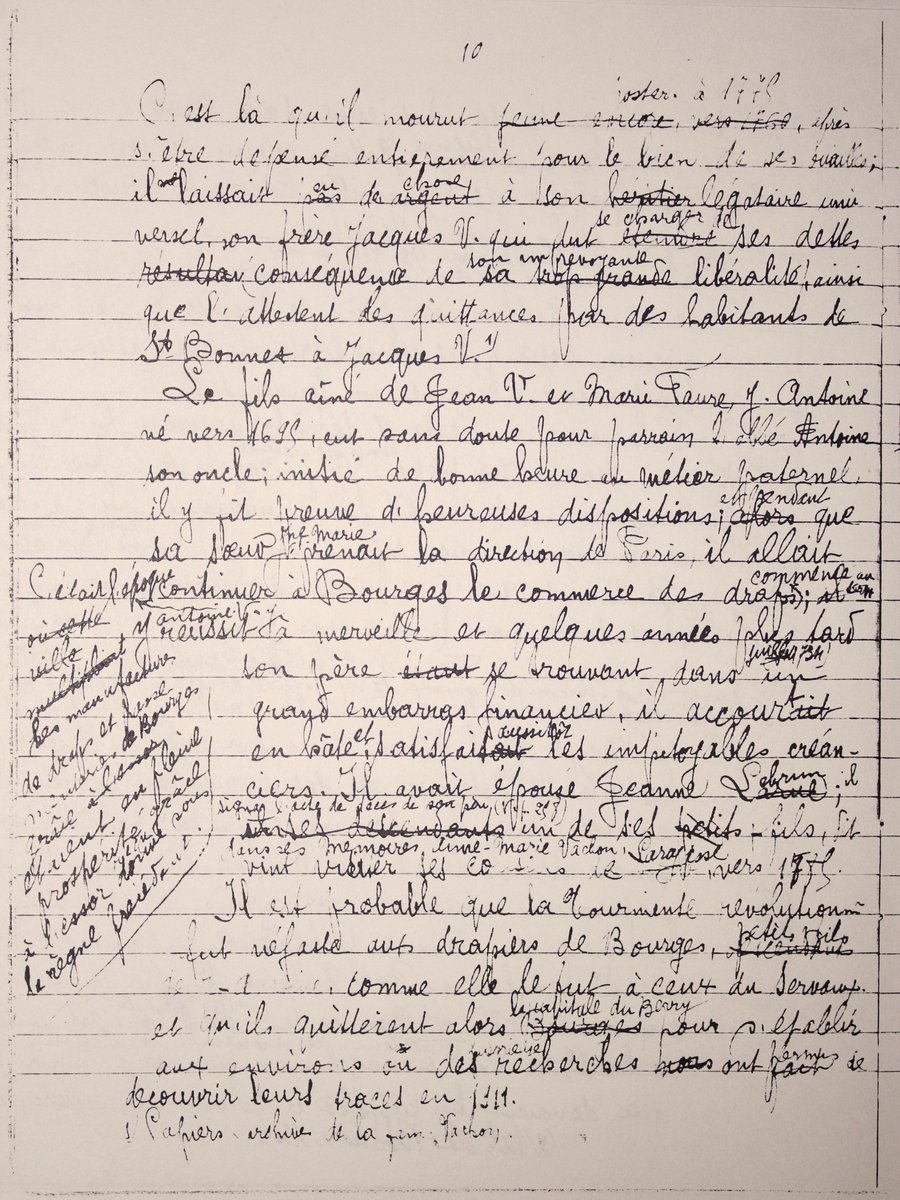 10
poster. à 1775
C'est là qu'il mourut jeune encore, vers 1760, après
s'être dépensé entièrement pour le bien de ses ouailles;
il ne laissait pas peu de argent chose à son héritier légataire uni
versel, son frère Jacques V. qui dut éteindre se charger de ses dettes
résultan conséquence de sa trop grande son imprévoyante libéralité, ainsi
que l'attestent des quittances par des habitants de
St Bonnet à Jacques V. 1)
Le fils aîné de Jean V. et Marie Faure, J. Antoine
né vers 1695, eut sans doute pour parrain l'abbé Antoine
son oncle; initié de bonne heure au métier paternel,
il y fit preuve d'heureuses dispositions; alors et pendant que
sa sœur Marie prenait la direction de Paris, il allait
continuer à Bourges le commerce des draps; commencé
y réussit à merveille et quelques années plus tard
son père étant se trouvant dans un
grand embarras financier, il accourait
en hâte et satisfaisait aussitôt les impitoyables créan-
ciers. Il avait épousé Jeanne Lebrun; il
signa l'acte de décès de son père
descendants un de ses petits-fils, dit
dans ses Mémoires, Anne-Marie Vachon,
vint visiter ses de vers 1775.
Il est probable que la Tourmente révolutionn
fut néfaste aux drapiers de Bourges, petits-fils
comme elle le fut à ceux du Servaux.
et qu'ils quittèrent alors Bourges la capitale du Berry pour s'établir
aux environs où des recherches nous ont fait permis de
découvrir leurs traces en 1911.
1) Papiers archives de la fam. Vachon.
C'était l'époque
où cette
ville
J. Antoine V.
les manufactures
de draps et
de Bourges
étaient en pleine
prospérité, grâce
à l'essor donné sous
le règne précédent.